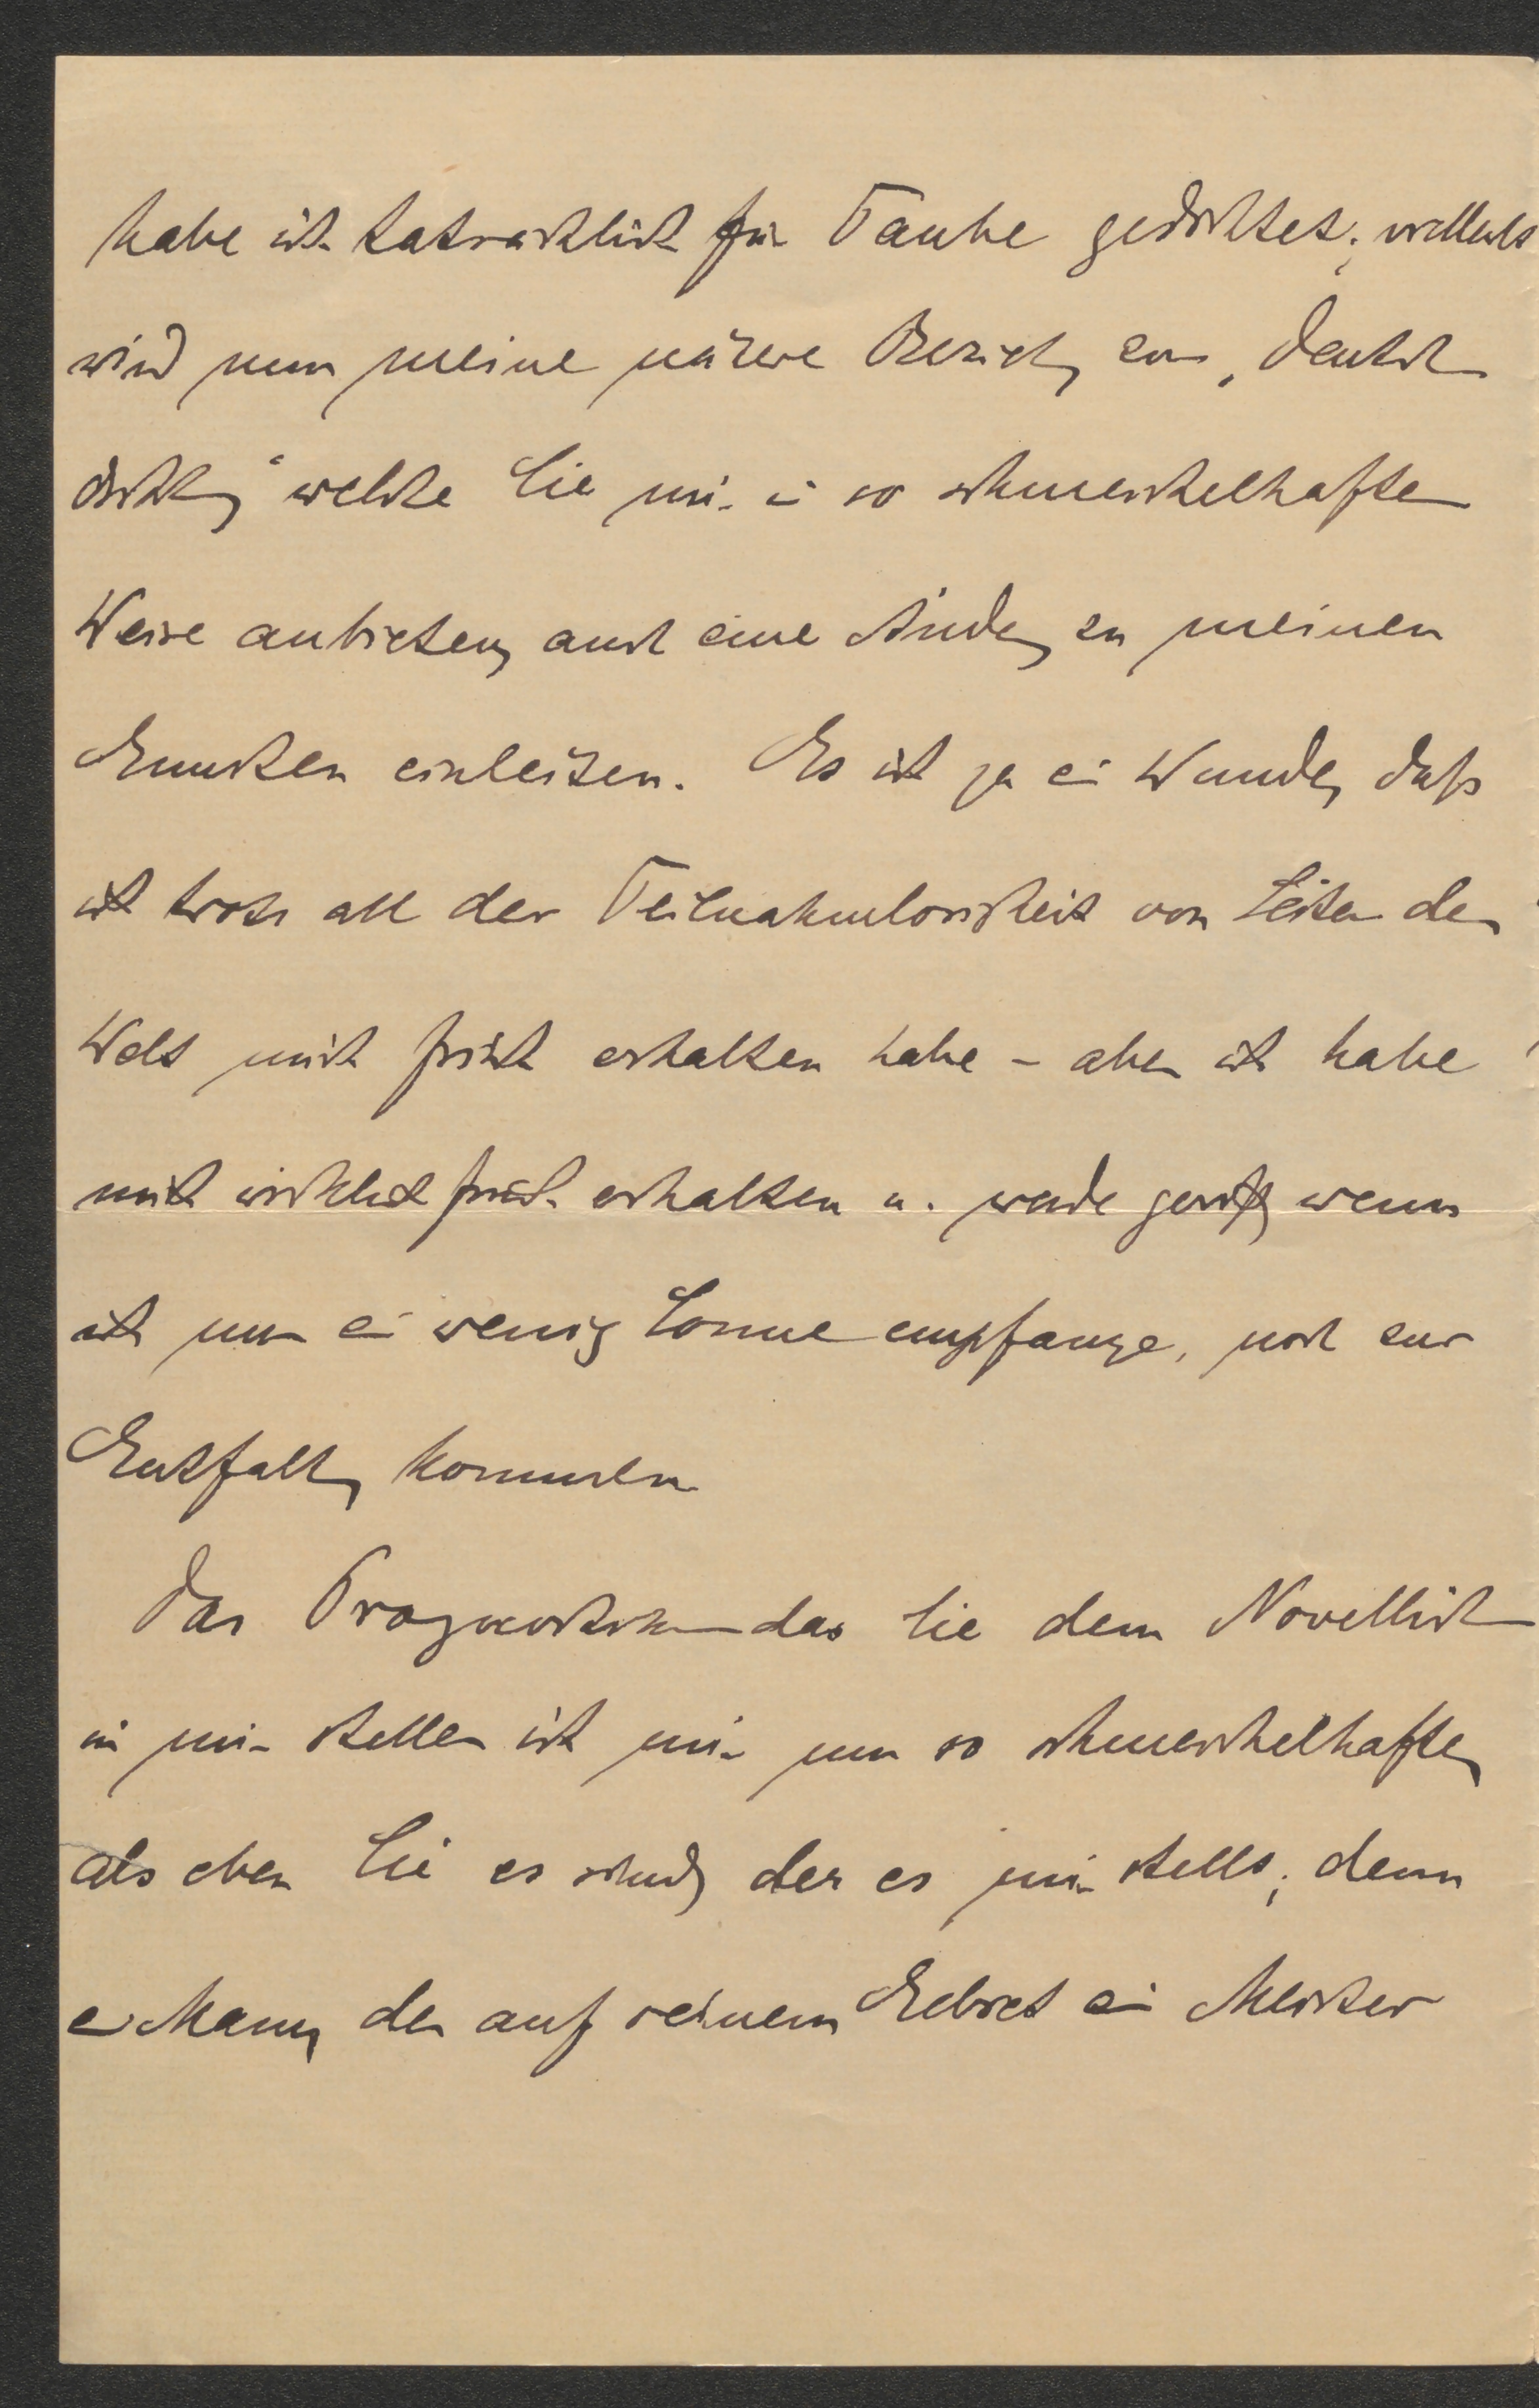 habe ich tatsächlich für Taube gedichtet; vielleicht
wird nun meine nähere Bezieh[ung] zur „Deutsch
dichtung" welche Sie mir in so schmeichelhafter
Weise anbieten, auch eine Änderung zu meinen
Gunsten einleiten. Es ist ja ein Wunder, daß
ich trotz all der Teilnahmslosigkeit von Seiten der
Welt mich frisch erhalten habe – aber ich habe
mich wirklich frisch erhalten u. werde gewiß, wenn
ich nur ein wenig Sonne empfange, noch zur
Entfaltung kommen
Das Prognostikon das Sie dem Novellisten
in mir stellen ist mir um so schmeichelhafter,
als eben Sie es sind, der es mir stellt; denn
ein Mann, der auf seinem Gebiet ein Meister